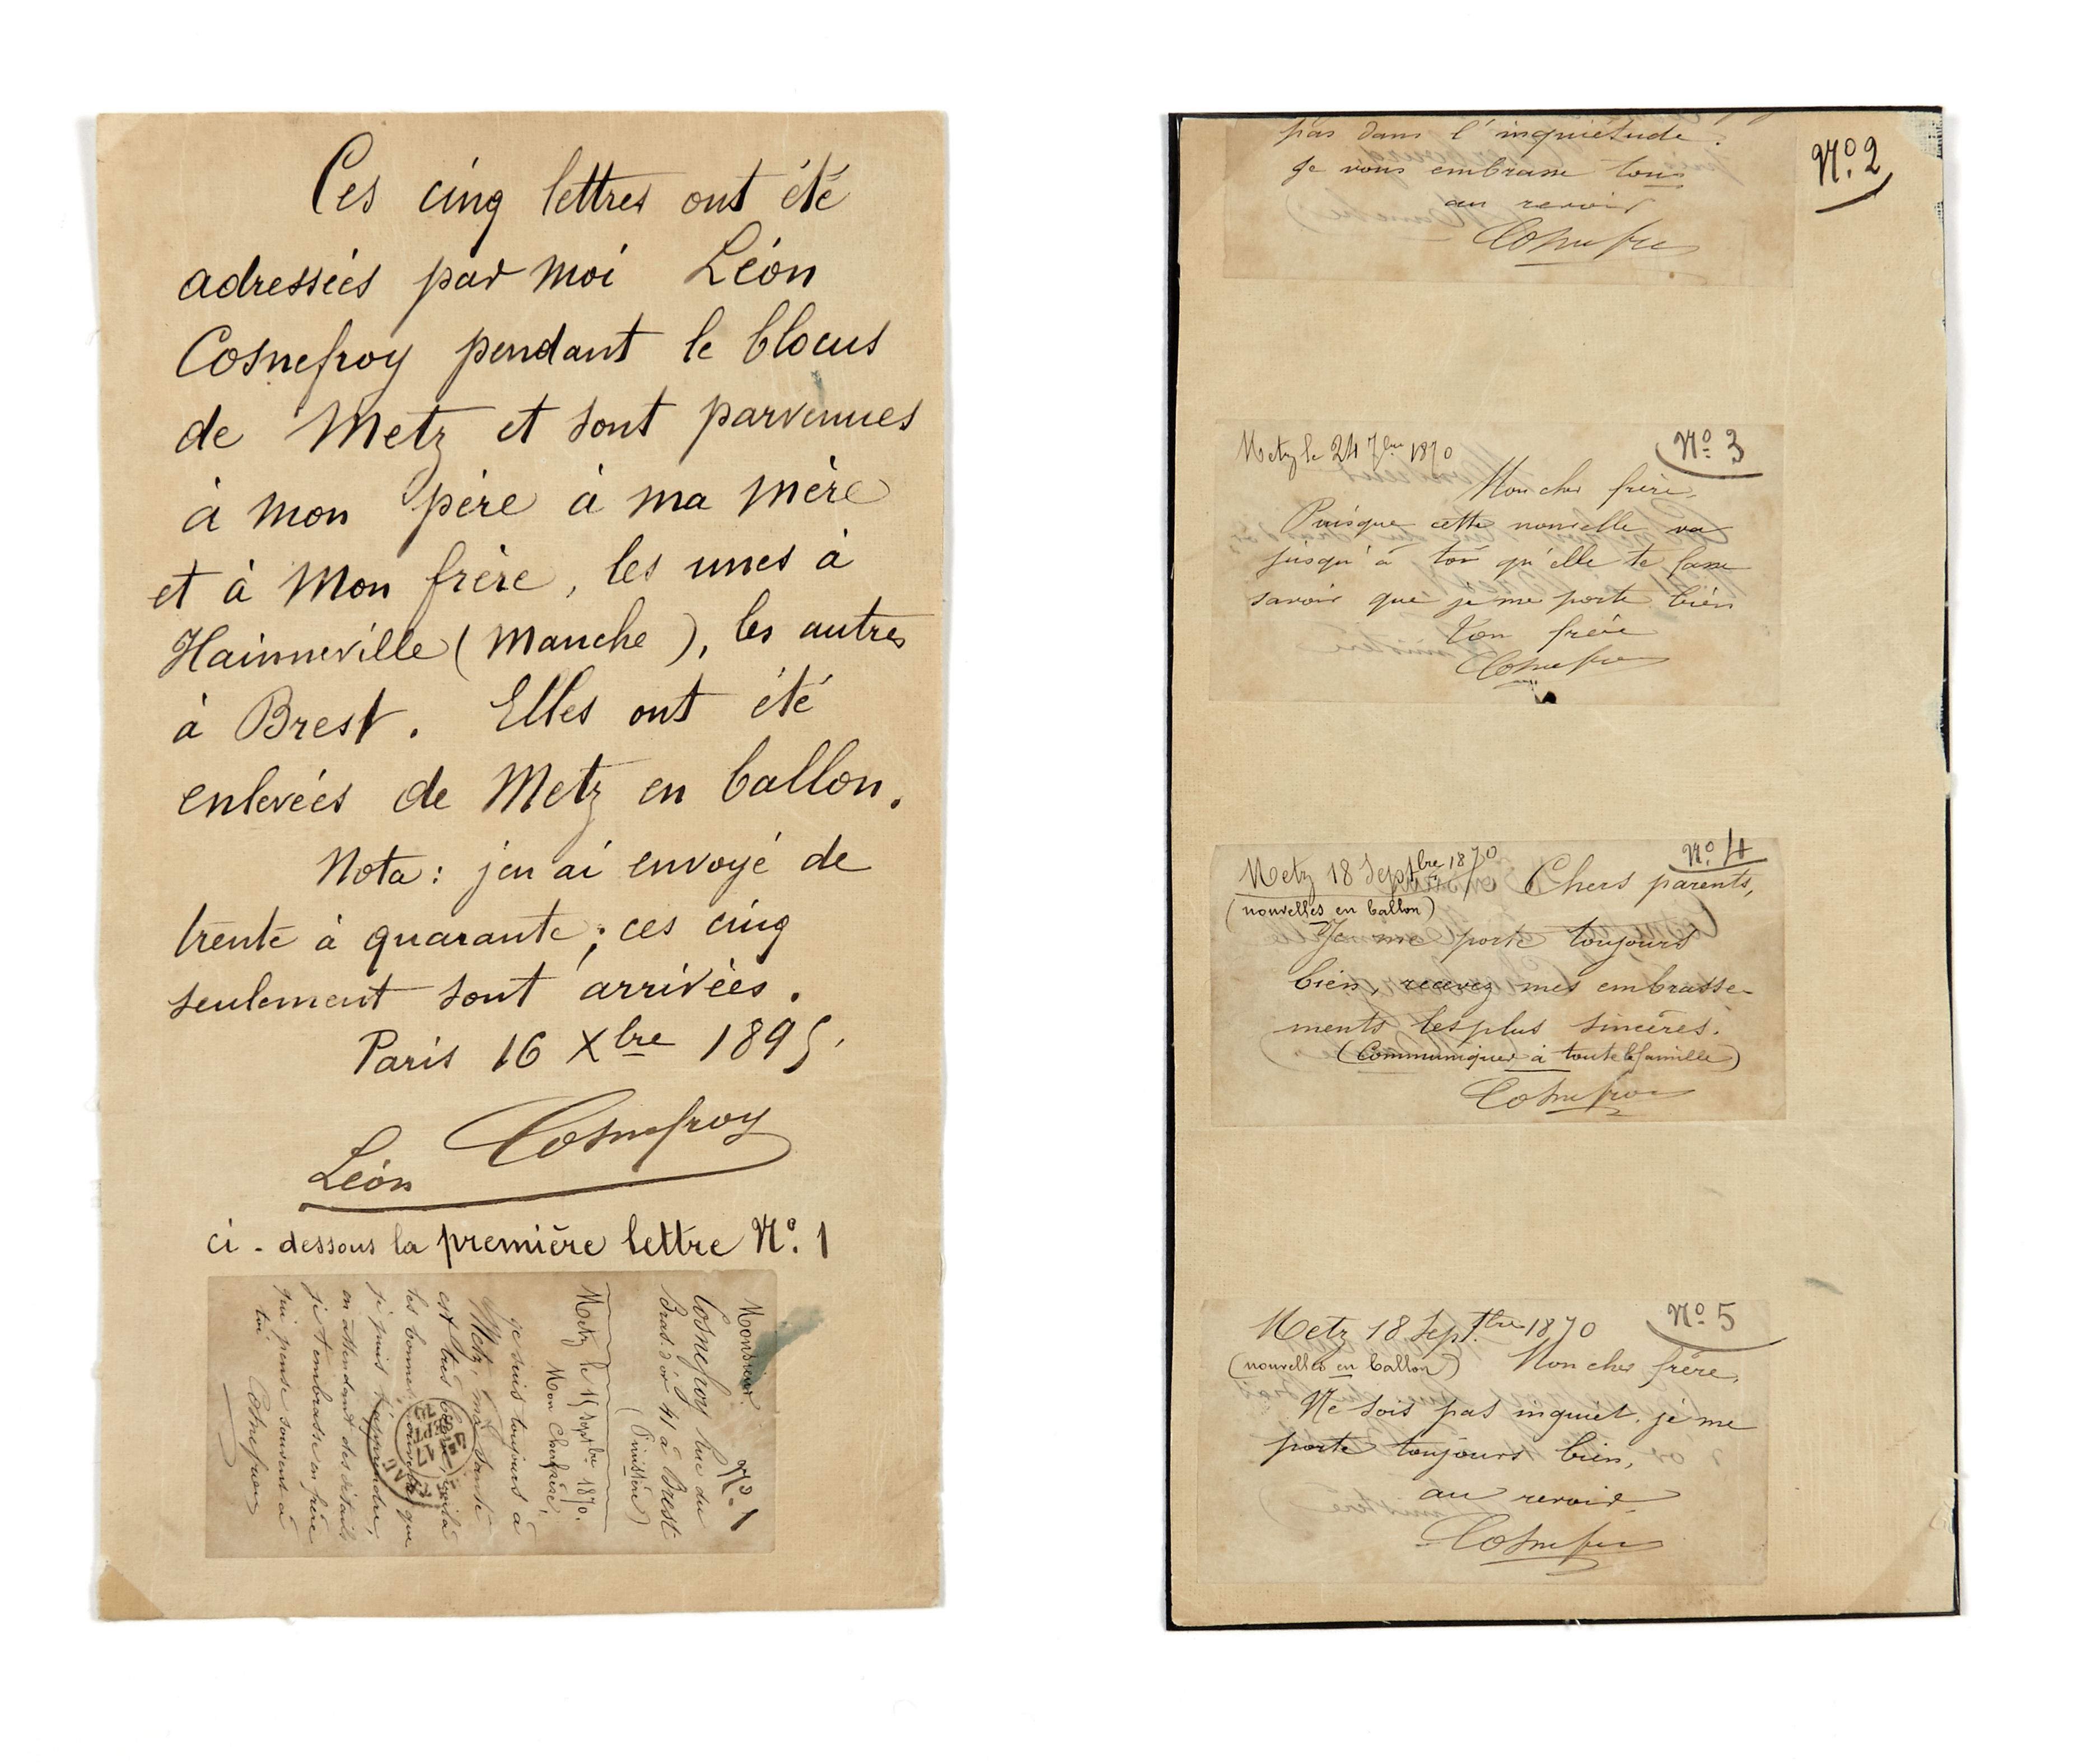 Ces cinq lettres ont été
adressées par moi Léon
Cosnefroy pendant le blocus
de Metz et sont parvenues
à mon père à ma mère
et à mon frère, les unes à
Hainneville (Manche), les autres
à Brest. Elles ont été
enlevées de Metz en ballon.
Nota : j'en ai envoyé de
trente à quarante ; ces cinq
seulement sont arrivées.
Paris 16 Xbre 1895.
Léon Cosnefroy
ci-dessous la première lettre No. 1
Monsieur No. 1
Cosnefroy Rue du
Bras d'or 41 à Brest
(Finistère)
Metz le 15 Septbre 1870.
Mon Cher frère,
Je suis toujours à
Metz, ma santé
est très bonne, voilà
les bonnes nouvelles que
je puis t'apprendre,
en attendant des détails
je t'embrasse en frère
qui pense souvent à
toi Cosnefroy
No. 2
pas dans l'inquiétude.
Je vous embrasse tous
au revoir
Cosnefroy
Metz le 24 7bre 1870 No 3
Mon cher frère,
Puisque cette nouvelle va
jusqu'à toi qu'elle te fasse
savoir que je me porte bien
Ton frère
Cosnefroy
Metz 18 Septbre 1870 No 4
Chers parents,
(nouvelles en ballon)
Je me porte toujours
bien, recevez mes embrasse-
ments les plus sincères.
(Communiquer à toute la famille)
Cosnefroy
Metz 18 Septbre 1870 No 5
(nouvelles en ballon) Mon cher frère,
Ne sois pas inquiet. je me
porte toujours bien,
au revoir
Cosnefroy